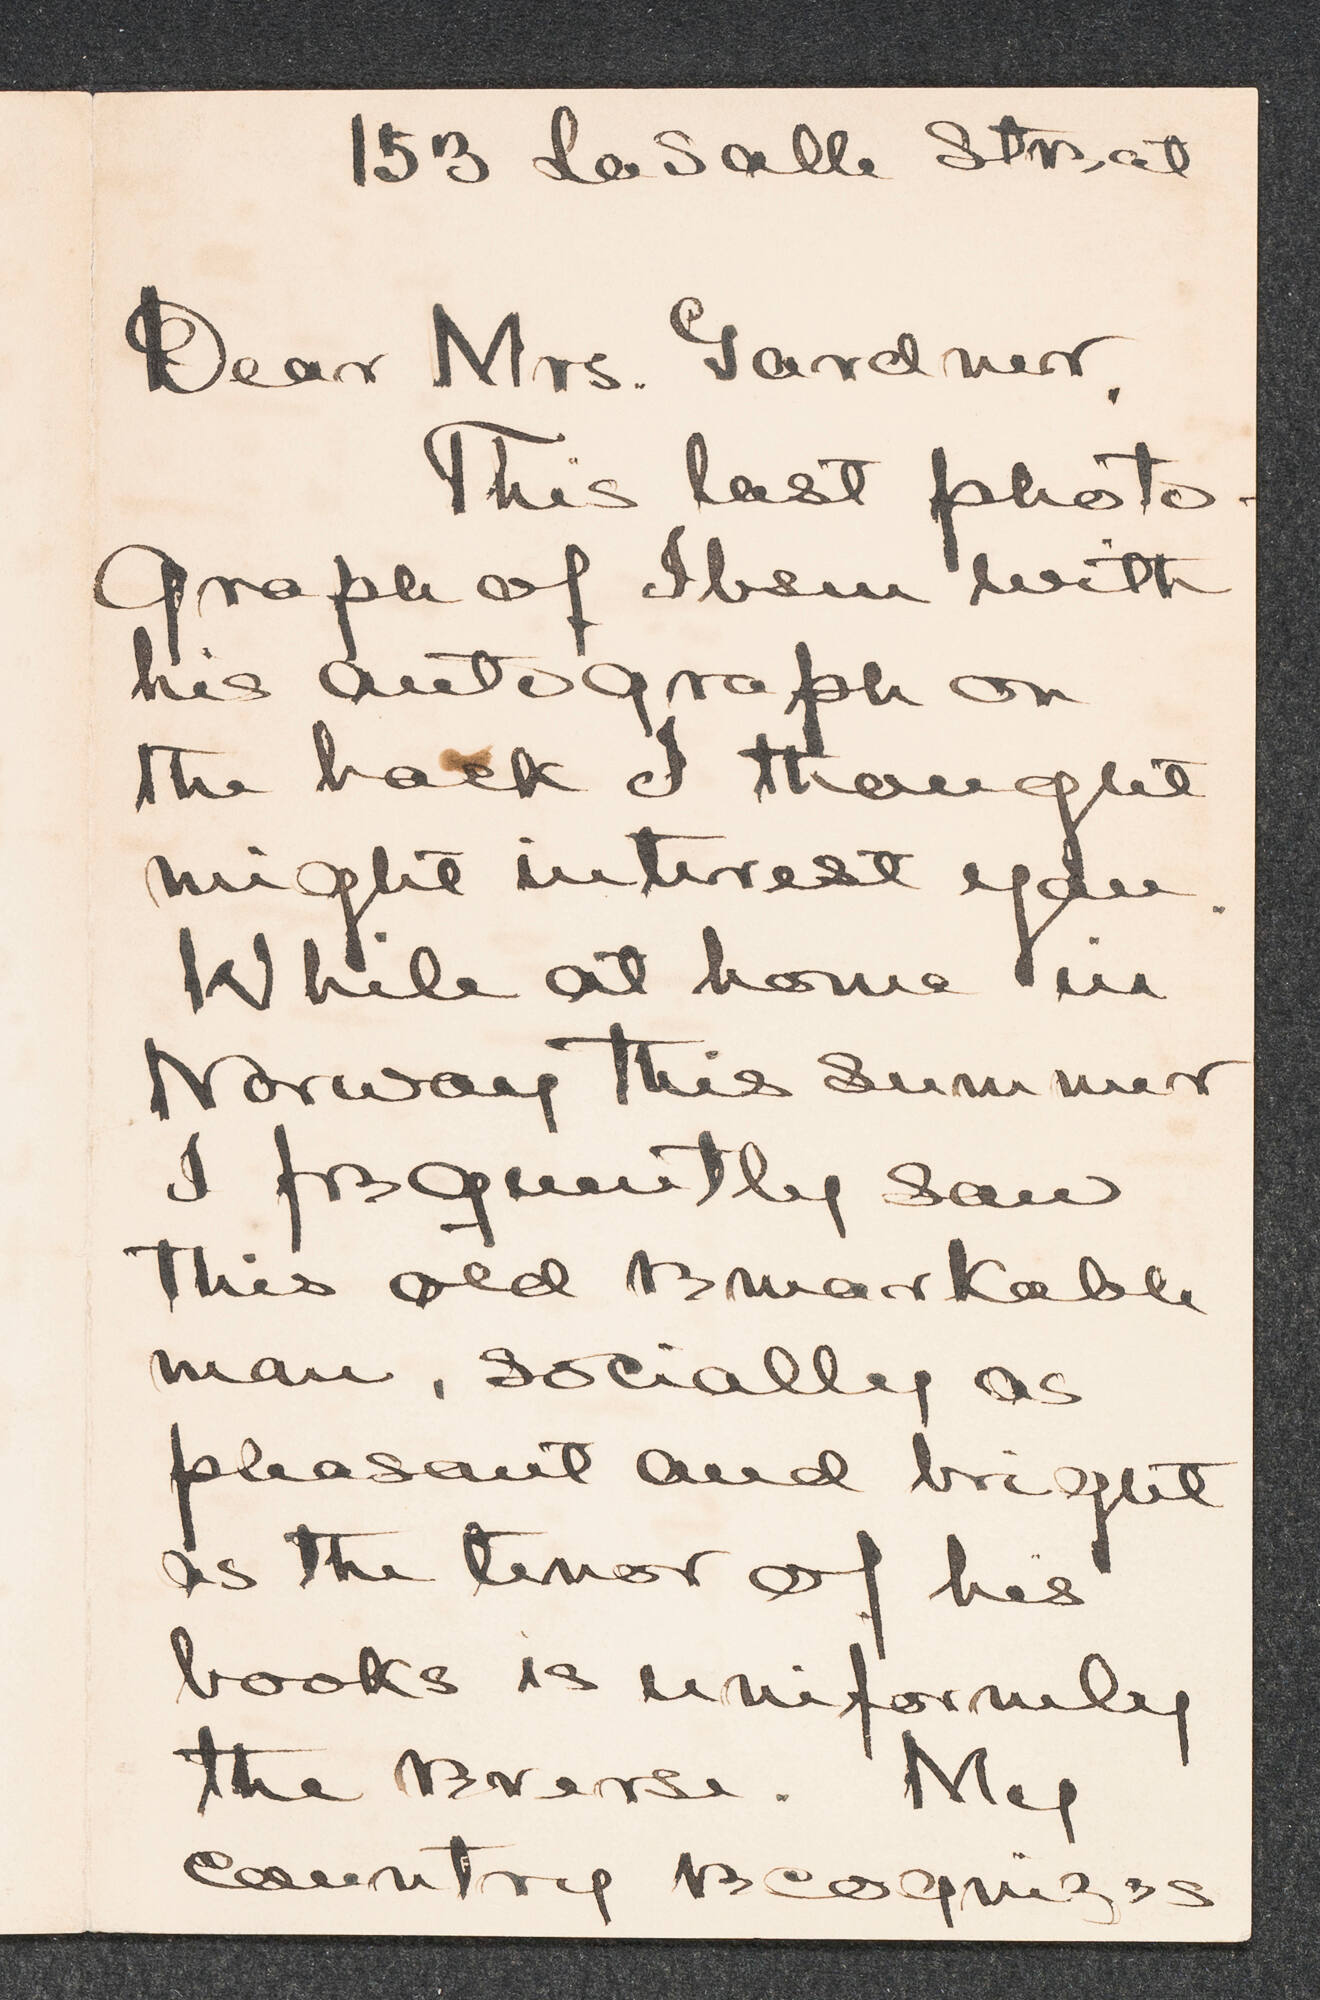 153 LaSalle Street
Dear Mrs. Gardner,
This last photo-
graph of Ibsen with
his autograph on
the back I thought
might interest you.
While at home in
Norway this summer
I frequently saw
this old remarkable
man, socially as
pleasant and bright
as the tenor of his
books is uniformly
the reverse. My
country recognizes